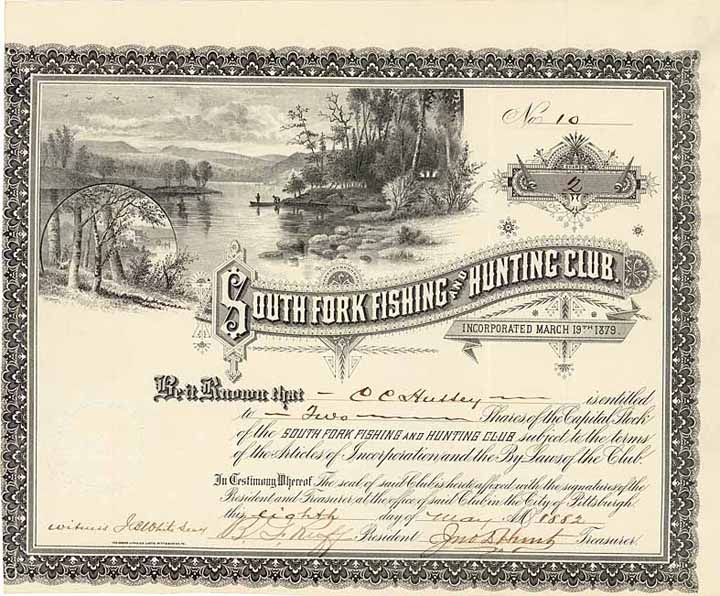 No 10
SHARES
2
SOUTH FORK FISHING AND HUNTING CLUB.
INCORPORATED MARCH 19TH 1879.
Be it Known that C C Hussey is entitled
to Two Shares of the Capital Stock
of the SOUTH FORK FISHING AND HUNTING CLUB, subject to the terms
of the Articles of Incorporation and the By Laws of the Club.
In Testimony Whereof The seal of said Club is hereto affixed with the signatures of the
President and Treasurer, at the office of said Club in the City of Pittsburgh
this eighth day of May AD 1882
witness White
B F Ruff President Jno Hunt Treasurer.